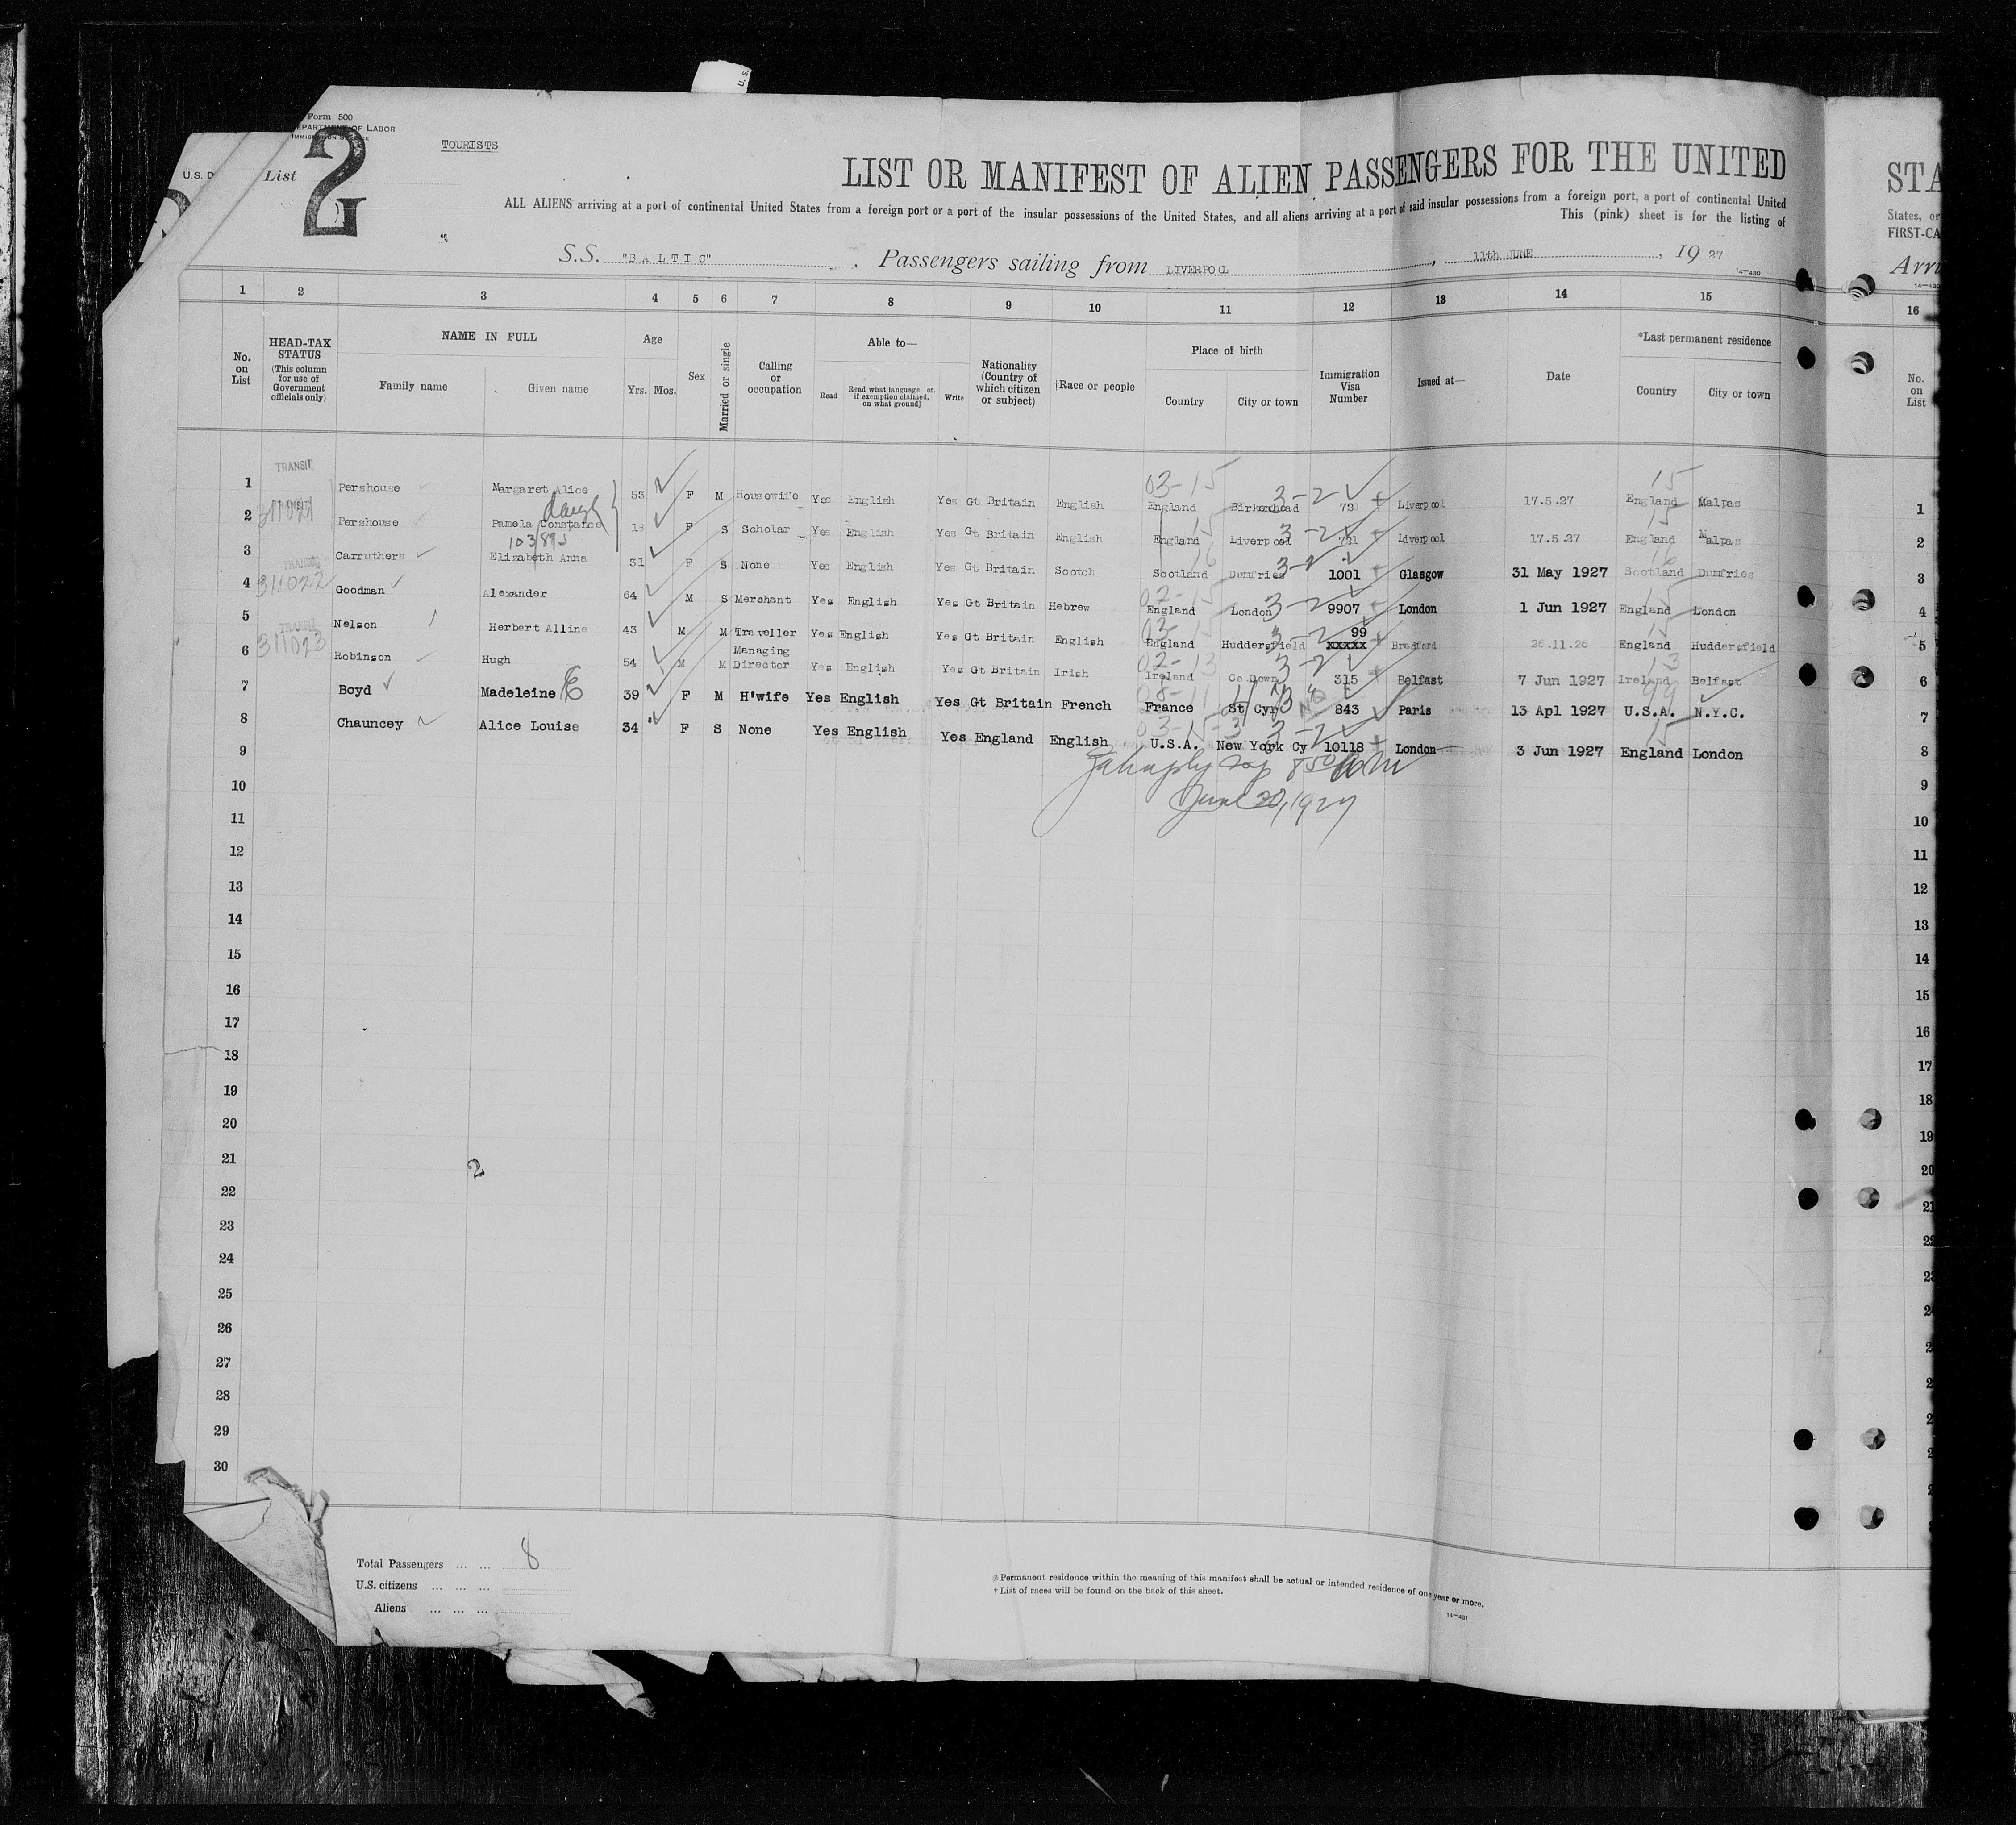 U. S.
Form 500
DEPARTMENT OF LABOR
IMMIGRATION SERVICE
U.S. D
List 2
TOURISTS
LIST OR MANIFEST OF ALIEN PASSENGERS FOR THE UNITED STA
ALL ALIENS arriving at a port of continental United States from a foreign port or a port of the insular possessions of the United States, and all aliens arriving at a port of said insular possessions from a foreign port, a port of continental United States, or
This (pink) sheet is for the listing of FIRST-CA
S.S. "BALTIC" . Passengers sailing from LIVERPOOL, 11th JUNE, 19 27 Arri
14—430 14—430
1 2 3 4 5 6 7 8 9 10 11 12 13 14 15 16
No. on List
HEAD-TAX STATUS (This column for use of Government officials only)
NAME IN FULL
Family name Given name
Age
Yrs. Mos.
Sex
Married or single
Calling or occupation
Able to—
Read Read what language or, if exemption claimed, on what ground] Write
Nationality (Country of which citizen or subject)
†Race or people
Place of birth
Country City or town
Immigration Visa Number
Issued at—
Date
*Last permanent residence
Country City or town
No. on List
TRANSIT 03-15 15
1 Pershouse Margaret Alice 53 F M Housewife Yes English Yes Gt Britain English England Birkenhead 3-2 Liverpool 17.5.27 England Malpas 1
311021 daugh 15 15
2 Pershouse Pamela Constance 18 F S Scholar Yes English Yes Gt Britain English England Liverpool 3-2 731 Liverpool 17.5.27 England Malpas 2
103895 16 16
3 Carruthers Elizabeth Anna 31 F S None Yes English Yes Gt Britain Scotch Scotland Dumfries 3-2 1001 Glasgow 31 May 1927 Scotland Dumfries 3
TRANSIT 311022 02-15 15
4 Goodman Alexander 64 M S Merchant Yes English Yes Gt Britain Hebrew England London 3-2 9907 London 1 Jun 1927 England London 4
03-15 99 15
5 Nelson Herbert Alline 43 M M Traveller Yes English Yes Gt Britain English England Huddersfield 3-2 XXXXX Bradford 26.11.26 England Huddersfield 5
TRANSIT 311023 02-13 13
6 Robinson Hugh 54 M M Managing Director Yes English Yes Gt Britain Irish Ireland Co.Down 3-2 315 Belfast 7 Jun 1927 Ireland Belfast 6
08-11 99
7 Boyd Madeleine E 39 F M H'wife Yes English Yes Gt Britain French France St Cyr 843 Paris 13 Apl 1927 U.S.A. N.Y.C. 7
03-15-3 15
8 Chauncey Alice Louise 34 F S None Yes English Yes England English U.S.A. New York Cy 3-2 10118 London 3 Jun 1927 England London 8
9 9
June 20, 1927
10 10
11 11
12 12
13 13
14 14
15 15
16 16
17 17
18 18
19 19
20 20
21 2 21
22 22
23
24
25
26
27
28
29
30
Total Passengers ... ... 8
U.S. citizens ... ... ...
Aliens ... ... ...
*Permanent residence within the meaning of this manifest shall be actual or intended residence of one year or more.
†List of races will be found on the back of this sheet.
14—431